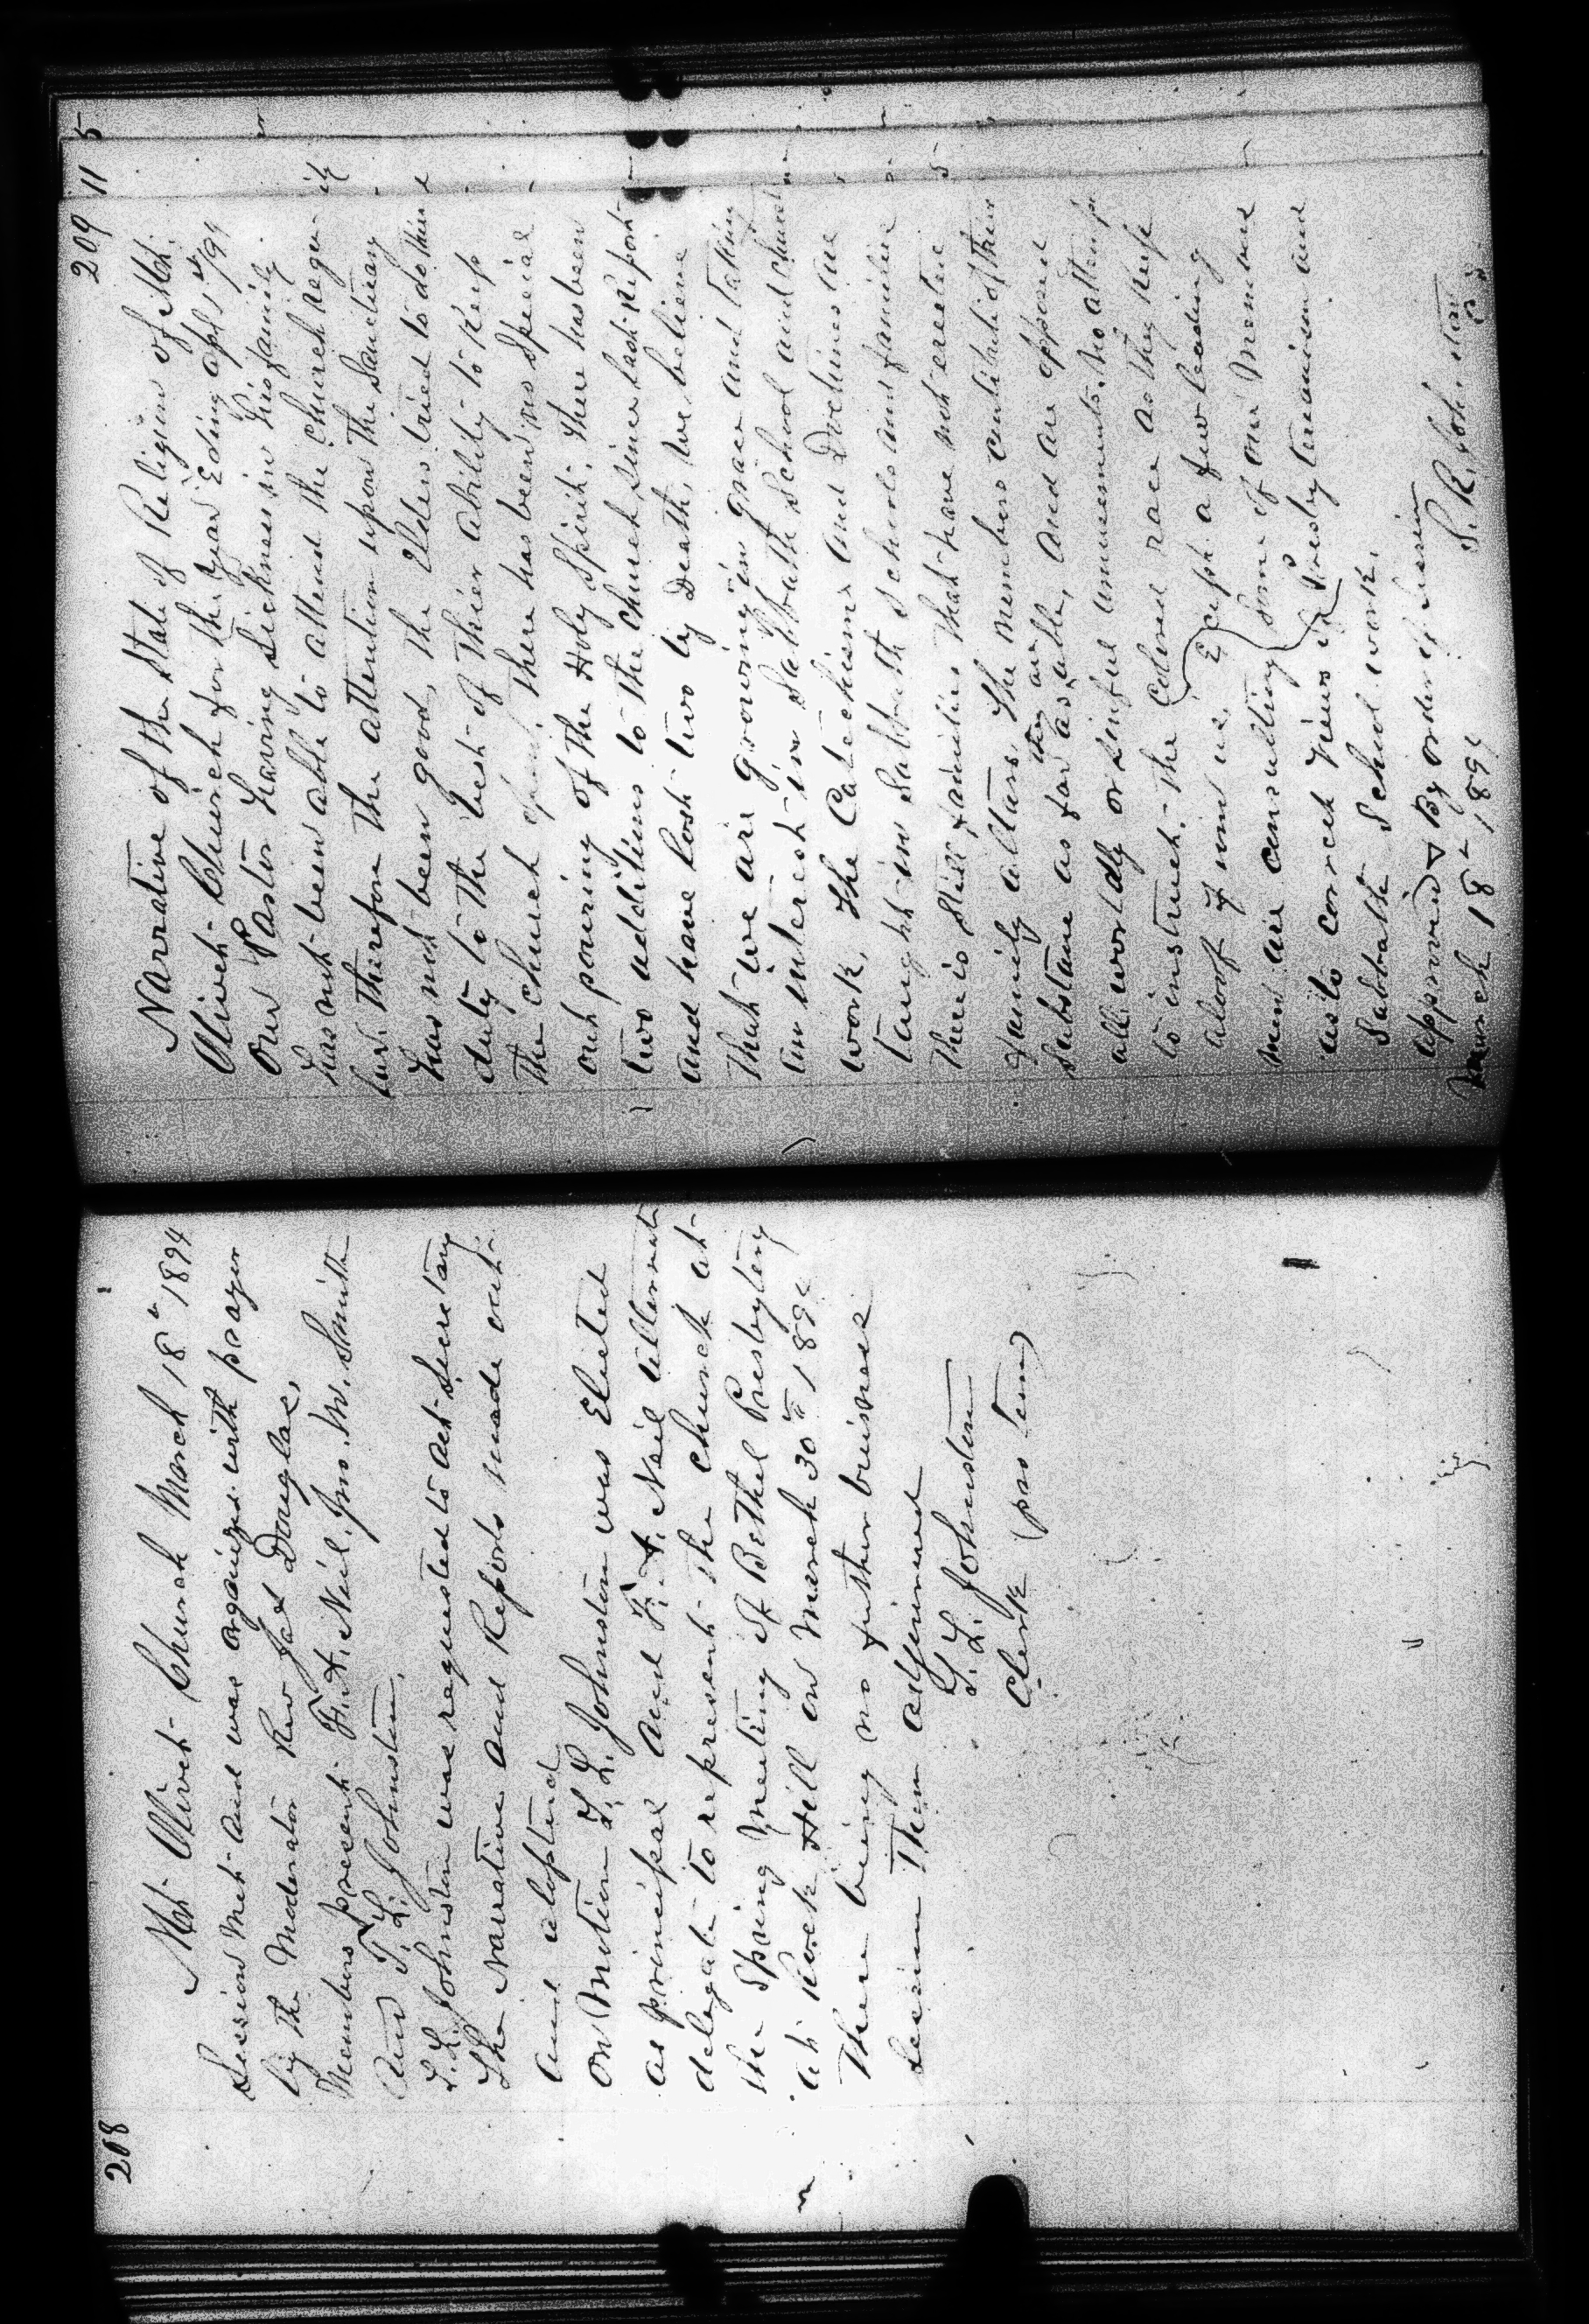 208
Mt Olivet Church March 18th 1894
Session Met and was organized with prayer
by the Moderator Rev Jas Douglas,
Members present F. A. Neil, Jno. M. Smith
and T. L. Johnston.
T. L. Johnston was requested to act Secretary
The Narrative and Reports made out
and adopted
on Motion T. L. Johnston was Elected
as principal and F. A. Neil Alternate
delegate to represent the church at
the Spring Meeting of Bethel Presbytery
at Rock Hill on March 30th 1894
There being no futher buisness
Session Then adjourned
T. L. Johnston
Clerk (pro tem)
209
11
5
Narrative of the State of Religion of Mt.
Olivet Church for the year Eding Apl 1st /94
Our Pastor having sickness in his family
has not been able to attend the church regu-
lar. therefore the attention upon the Sanctuary
has not been good, the Elders tried to do thier
duty to the best of thier ability to keep
the church there has been no special
out pouring of the Holy Spirit. there has been
two additions to the church since last Report
and have lost two by Death, we believe
that we are growing in grace and taking
an interest in Sabbath School and church
work. The Catechisms and Doctrines are
taught in Sabbath schools and families
There is still families that have not erected
family altars. The members contribute of thier
Substance as far as they are able, and are opposed
all worldly or sinful amusements. No attempt
to instruct the Colored race as they keep
aloof from us. Except a few leading
men are consulting some of our Members
as to correct views of Presbyterianism and
Sabbath School work.
approved By order of Session
March 18th 1894 S. R. Johnston